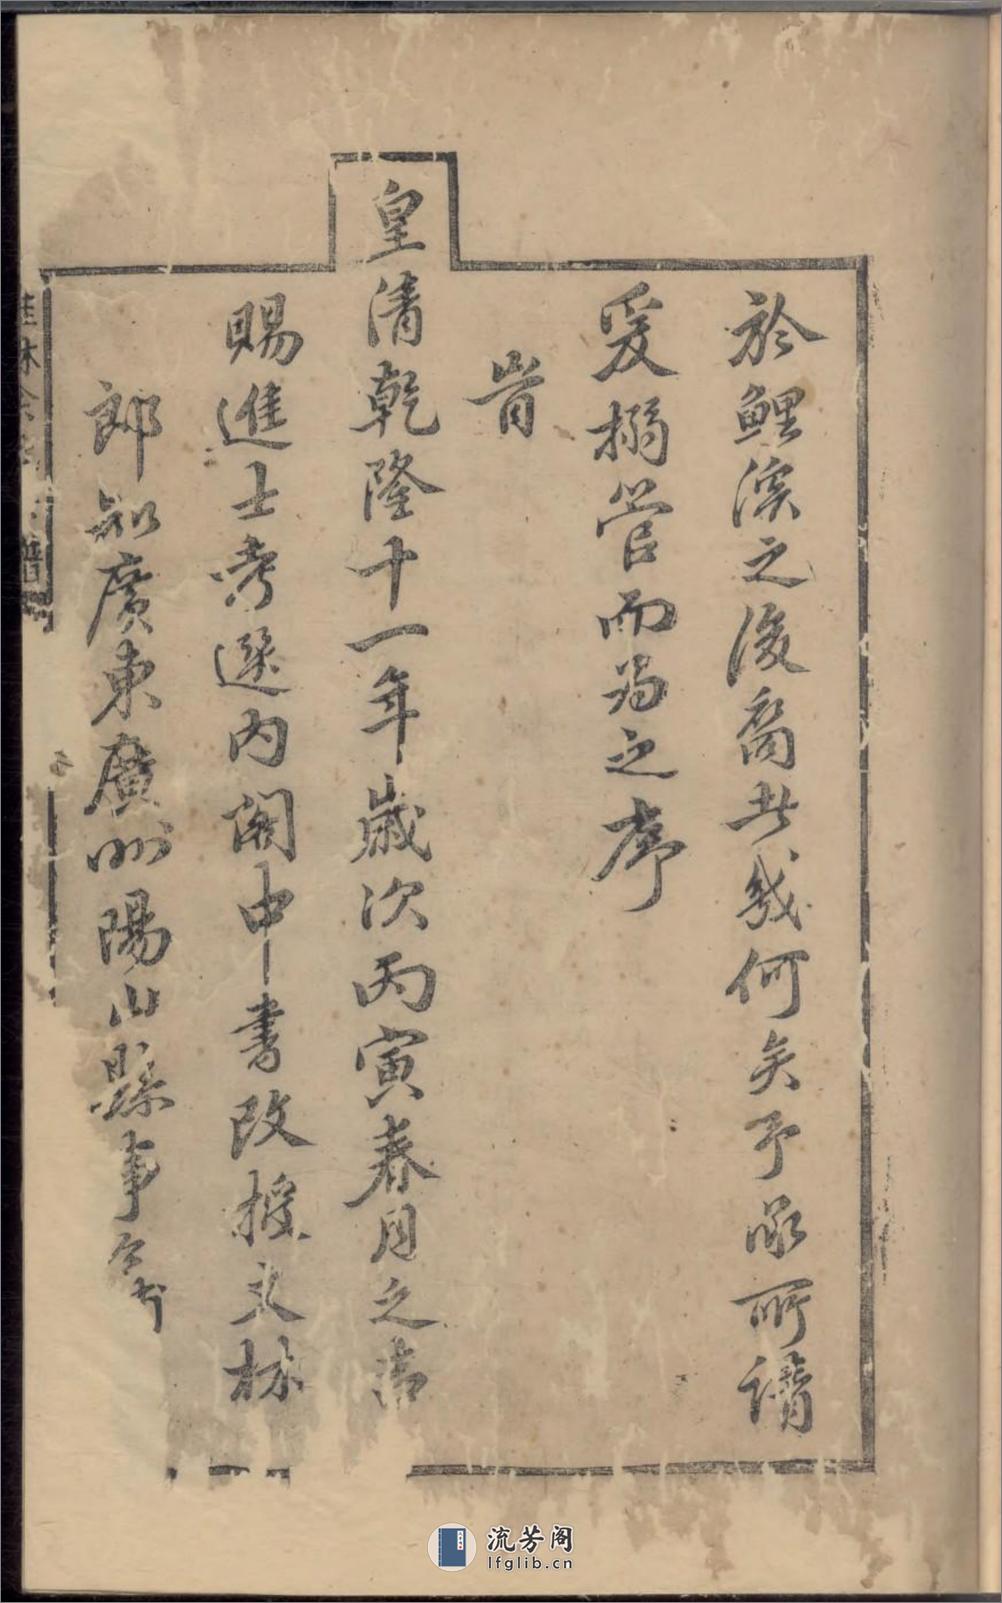 於鯉溪之後裔其幾何矣予承所請
爰搦管而為之序
旹
皇清乾隆十一年歲次丙寅春月之吉
賜進士考選內閣中書改授文林
郎知廣東廣州陽山縣事
桂林
譜
流芳阁
lfglib.cn